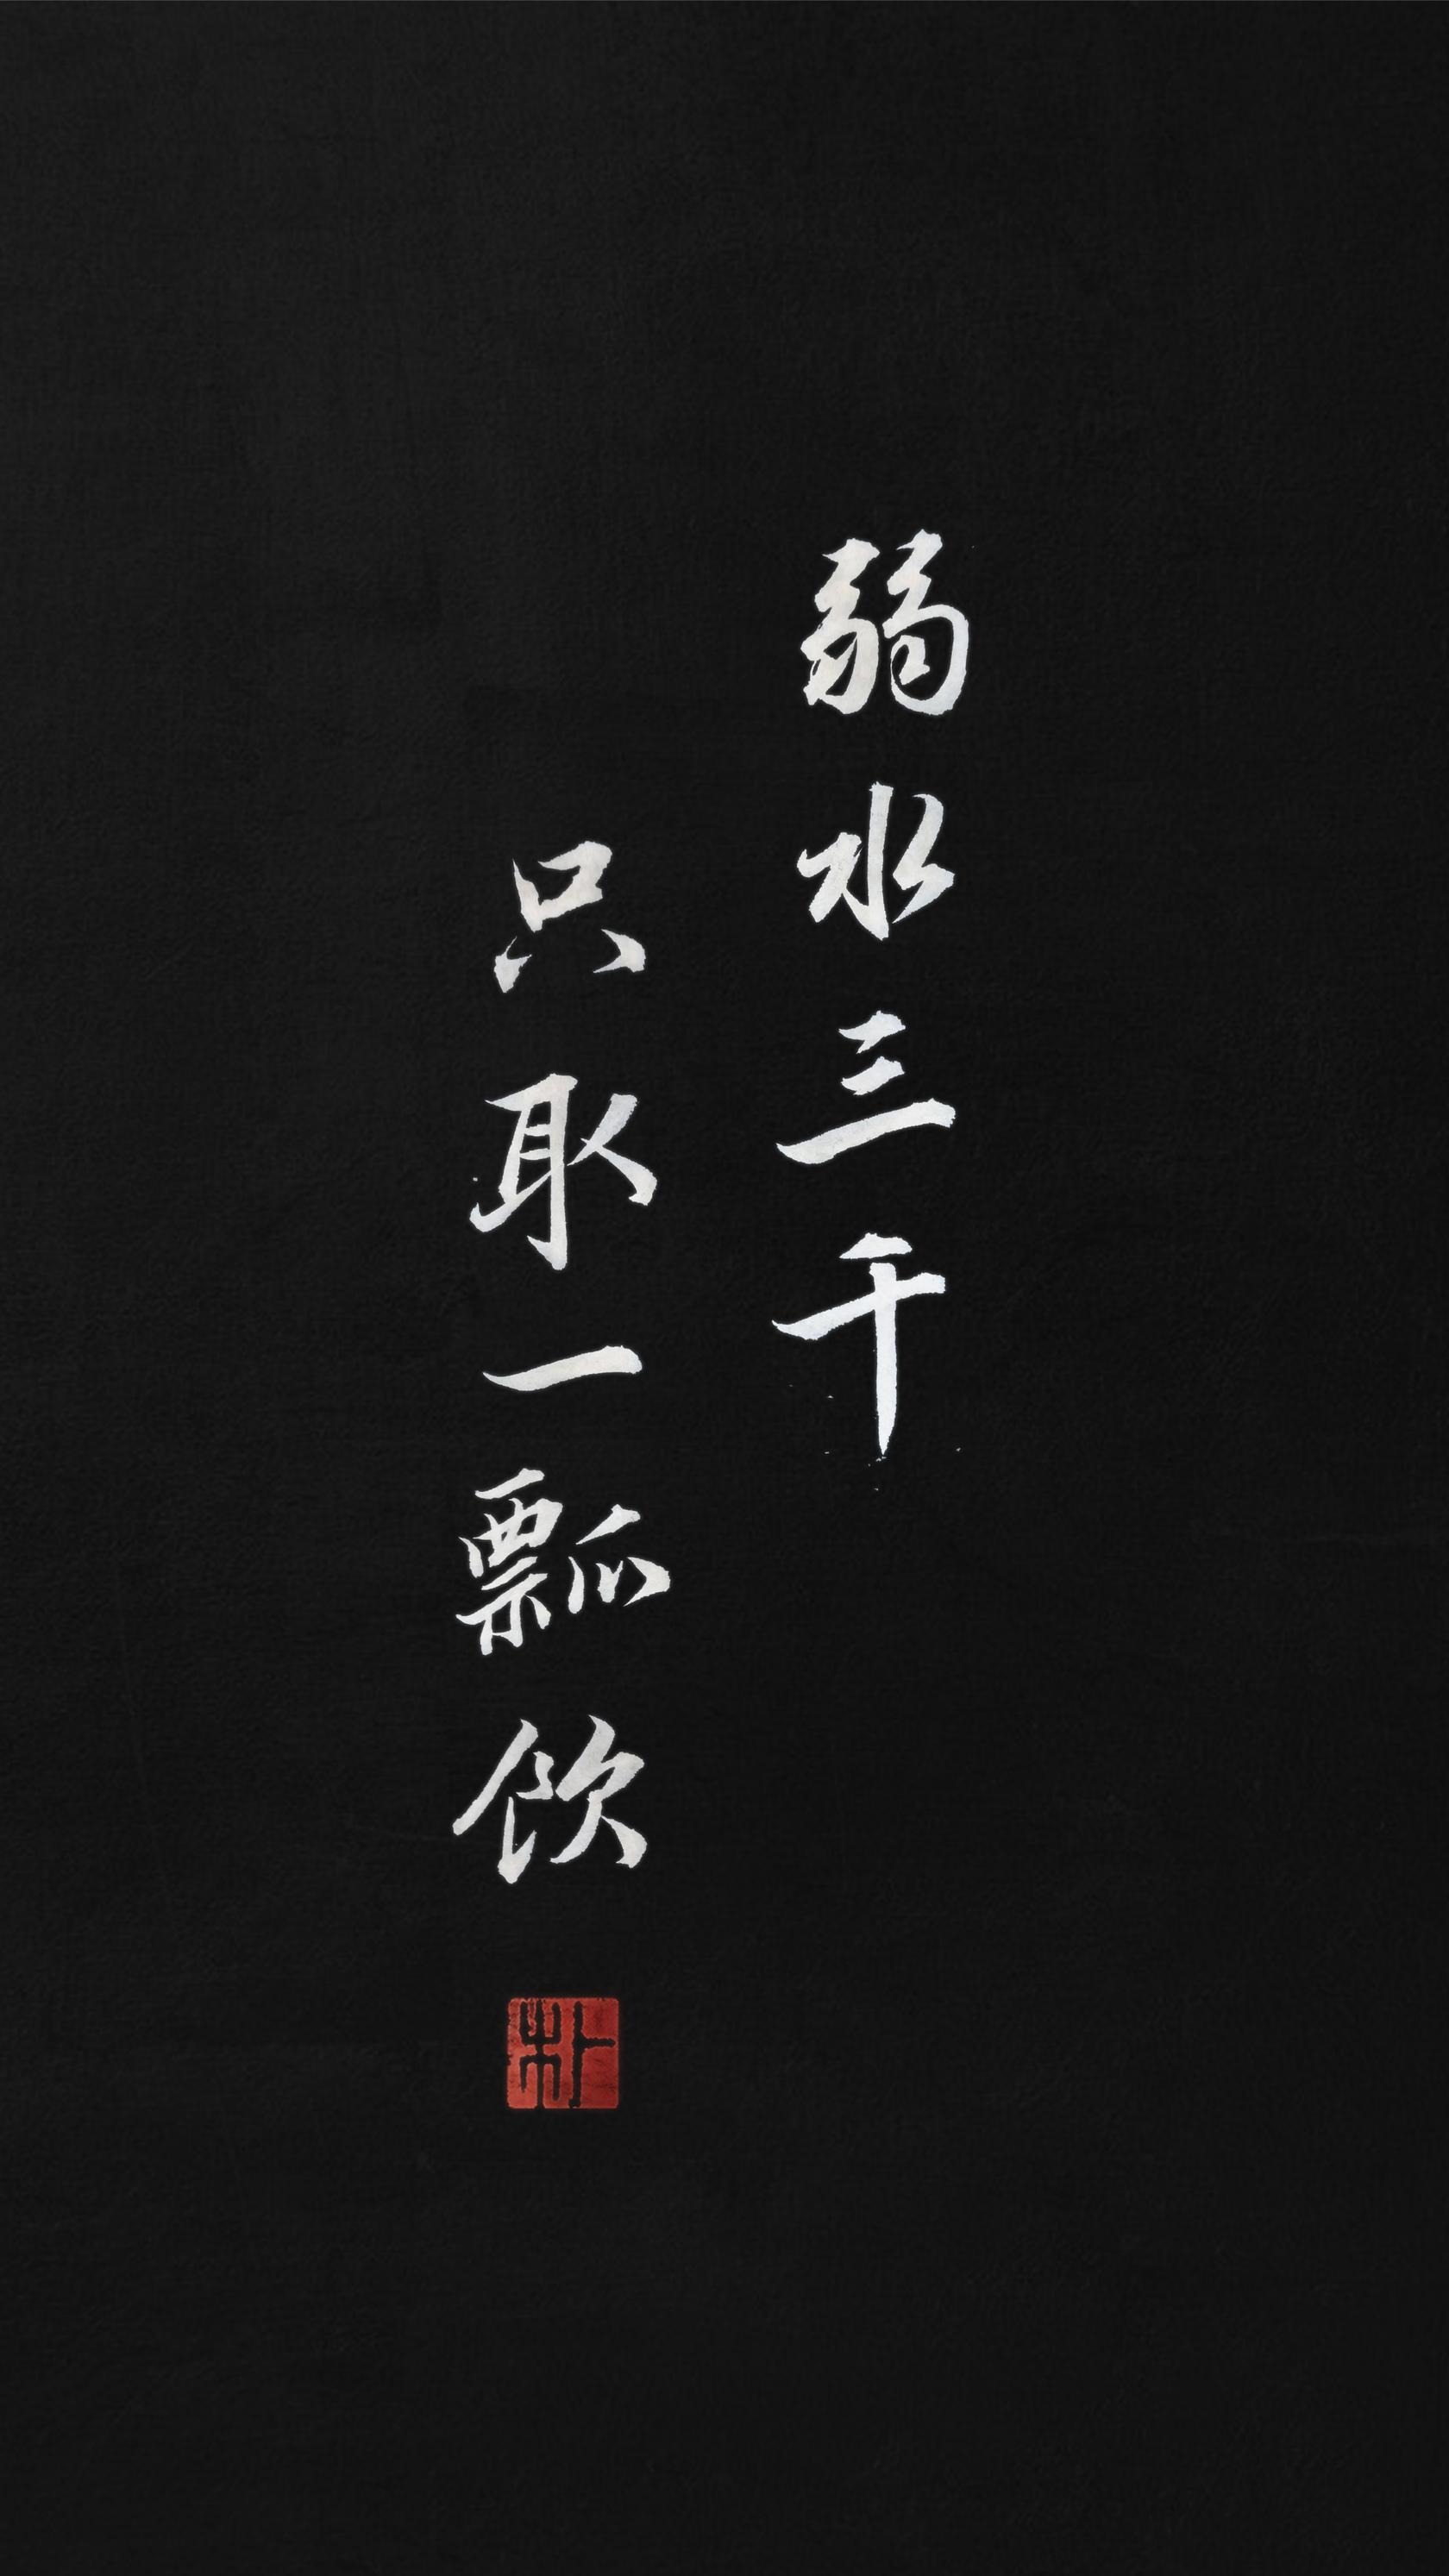 弱水三千
只取一瓢飲
朴